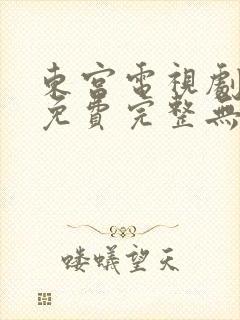 東宮電視劇
免費完整無
喽蟻望天